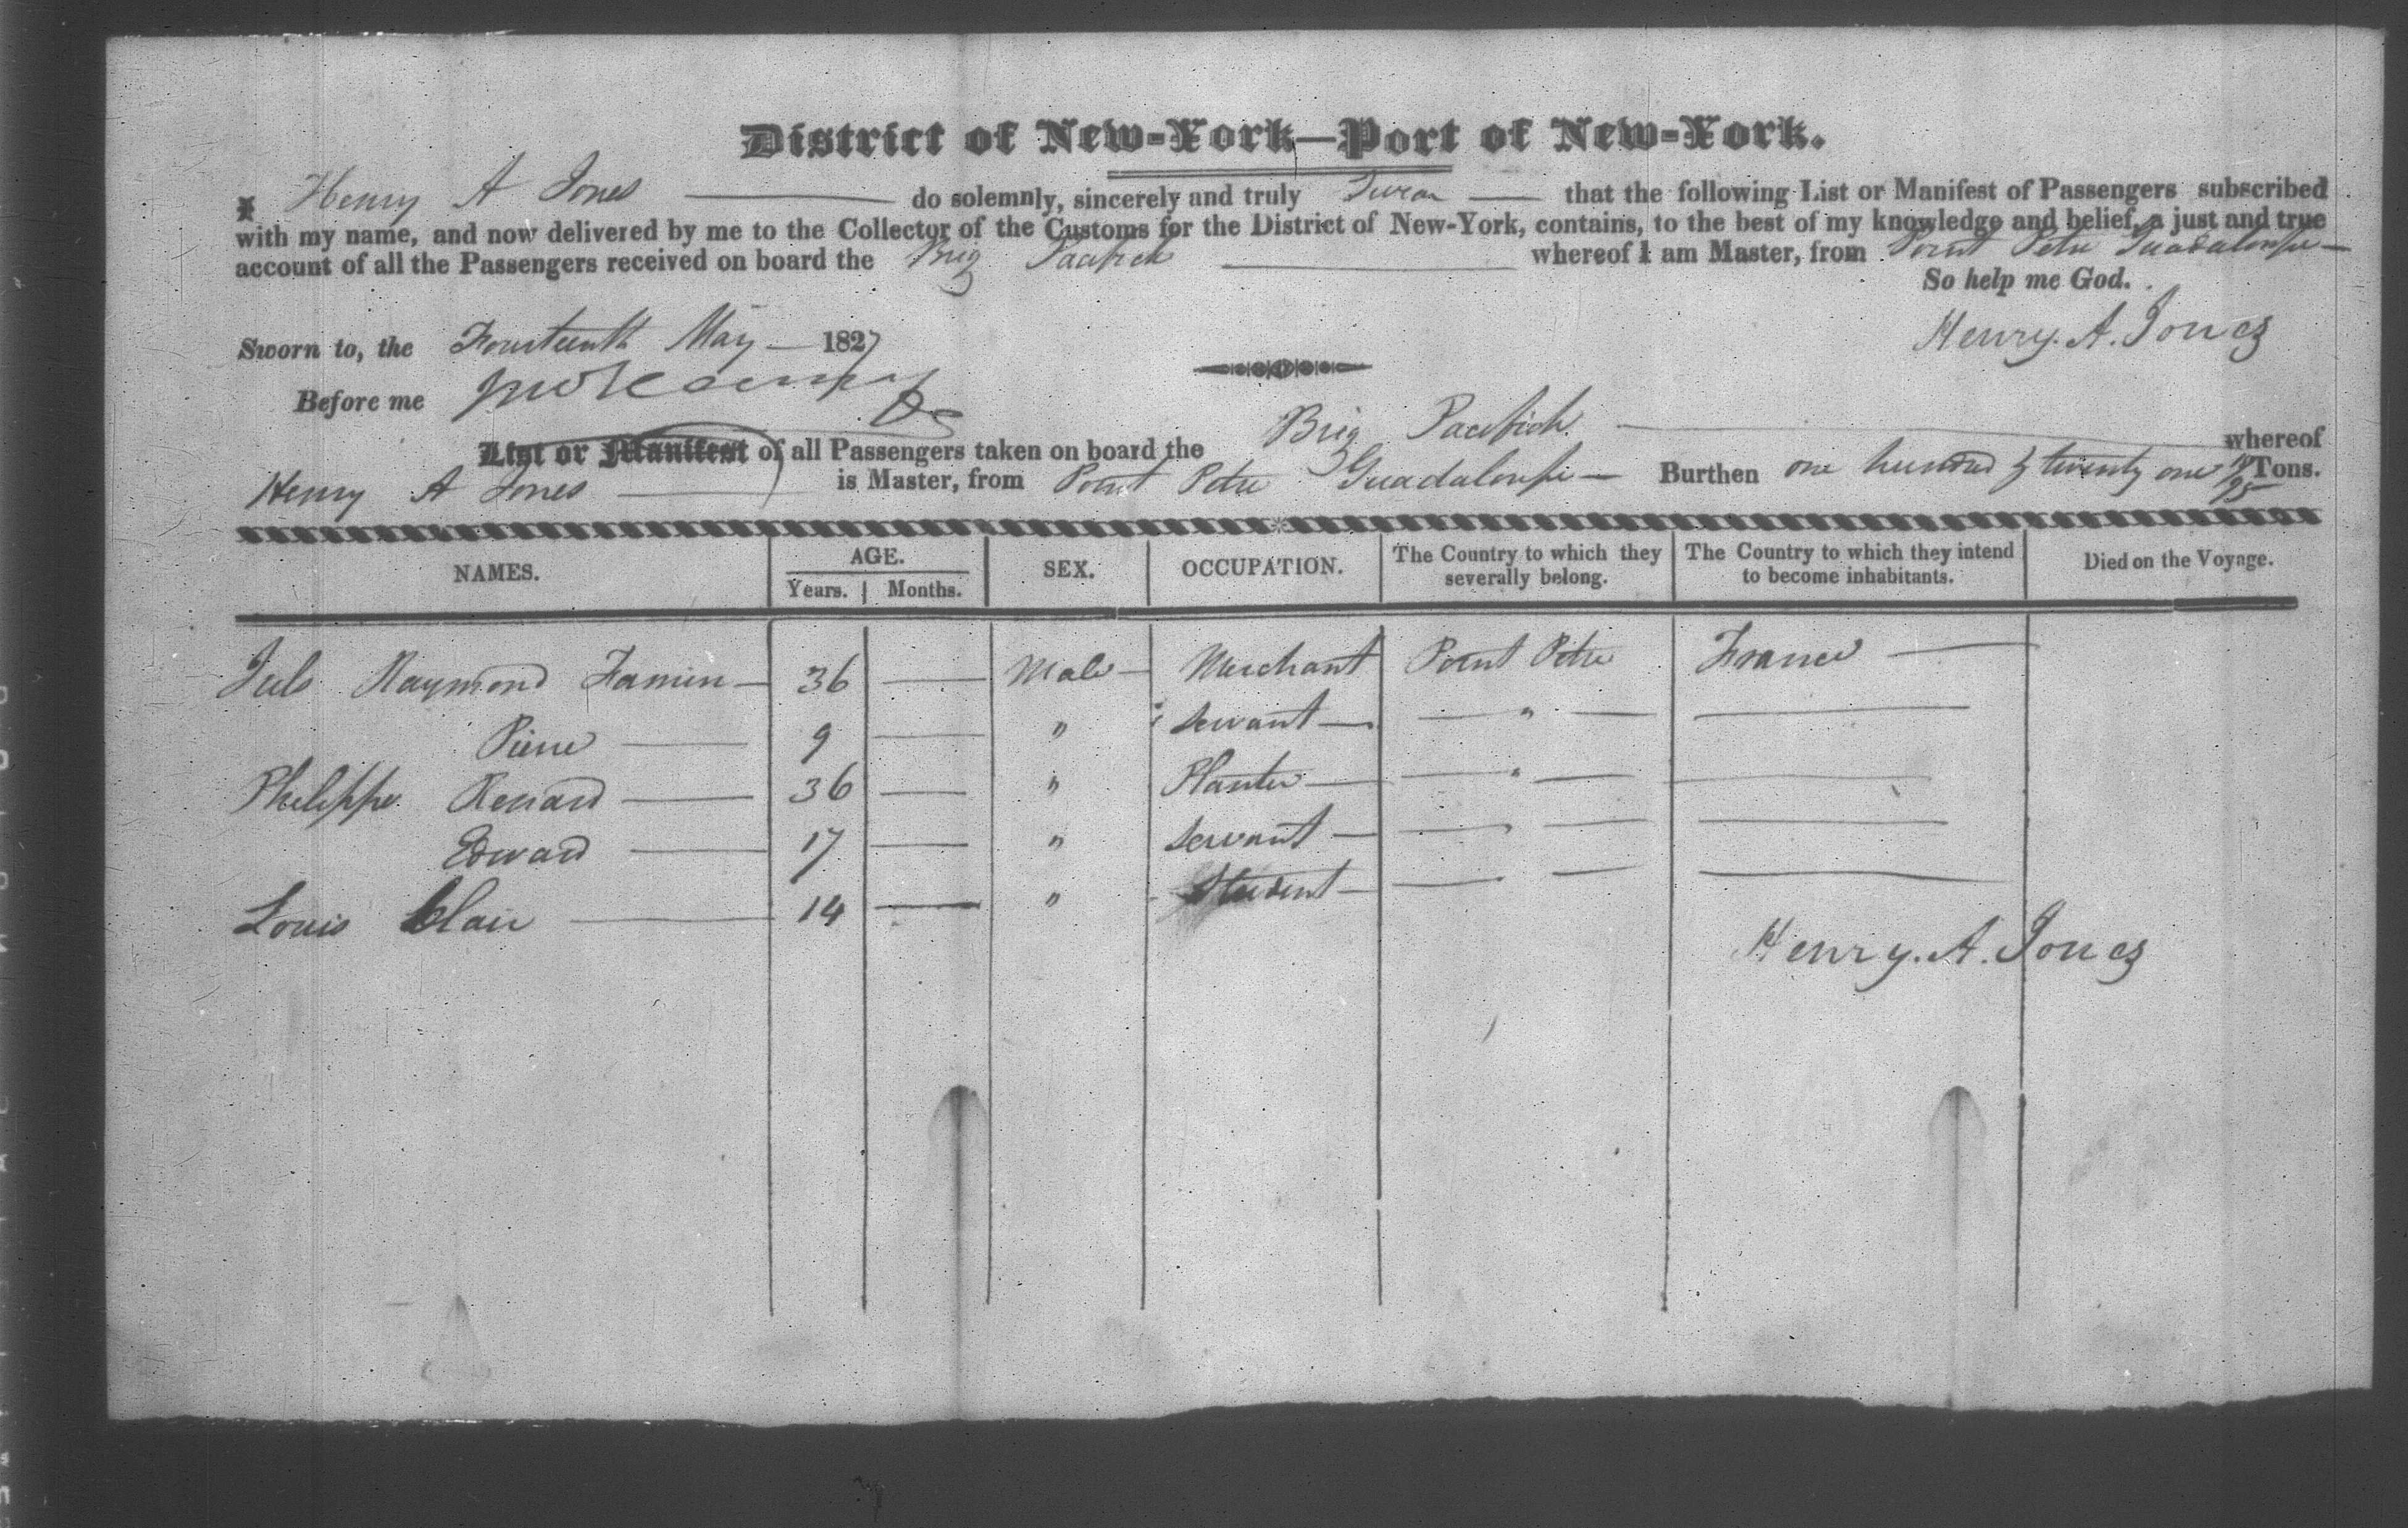 District of New-York—Port of New-York.
I Henry A Jones do solemnly, sincerely and truly Swear that the following List or Manifest of Passengers subscribed
with my name, and now delivered by me to the Collector of the Customs for the District of New-York, contains, to the best of my knowledge and belief, a just and true
account of all the Passengers received on board the Brig Pacifick whereof I am Master, from Point Petre Guadaloupe
So help me God.
Henry. A. Jones
Sworn to, the Fourteenth May 1827
Before me
List or Manifest of all Passengers taken on board the Brig Pacifick whereof
Henry A Jones is Master, from Point Petre Guadaloupe Burthen one hundred & twenty one /95 Tons.
NAMES. AGE. SEX. OCCUPATION. The Country to which they severally belong. The Country to which they intend to become inhabitants. Died on the Voyage.
Years. Months.
Jules Raymond Famin — 36 — Male — Merchant Point Petre France —
Pierre — 9 — " servant — — " — —
Philippe Renard — 36 — " Planter — — " — —
Edward — 17 — " servant — — — —
Louis Clair — 14 — " student — — — —
Henry. A. Jones